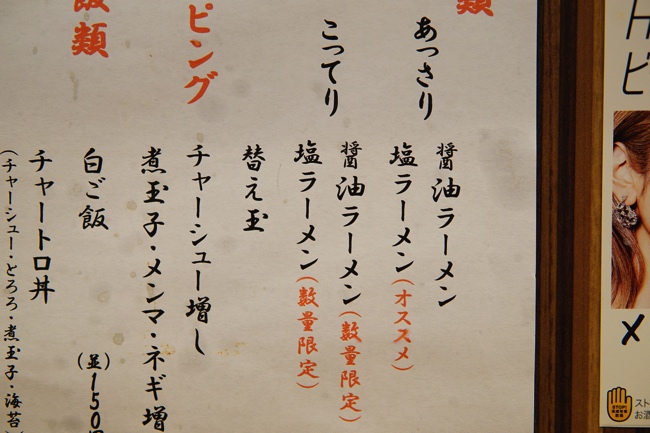 類
あっさり
醤油ラーメン
塩ラーメン(オススメ)
こってり
醤油ラーメン(数量限定)
塩ラーメン(数量限定)
替え玉
ピング
チャーシュー増し
煮玉子・メンマ・ネギ増
飯類
白ご飯
(並)150円
チャートロ丼
(チャーシュー・とろろ・煮玉子・海苔)
ビ
メ
STOP!
スト
お酒